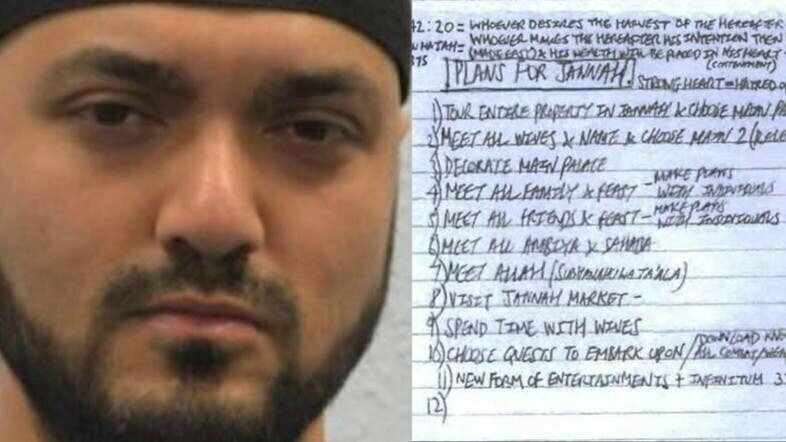 42:20 = WHOEVER DESIRES THE HARVEST OF THE HEREAFTER
WHOEVER MAKES THE HEREAFTER HIS INTENTION THEN
(MADE EASY) & HIS WEALTH WILL BE PLACED IN HIS HEART
(CONTENTMENT)
PLANS FOR JANNAH.
STRONG HEART = HATRED
1) TOUR ENTIRE PROPERTY IN JANNAH & CHOOSE MAIN
2) MEET ALL WIVES & NAME & CHOOSE MAIN 2
3) DECORATE MAIN PALACE
4) MEET ALL FAMILY & FEAST - MAKE PLANS WITH INDIVIDUALS
5) MEET ALL FRIENDS & FEAST - MAKE PLANS WITH INDIVIDUALS
6) MEET ALL ANBIYA & SAHABA
7) MEET ALLAH
8) VISIT JANNAH MARKET -
9) SPEND TIME WITH WIVES
10) CHOOSE QUESTS TO EMBARK UPON / DOWNLOAD
11) NEW FORM OF ENTERTAINMENTS + INFINITUM
12)